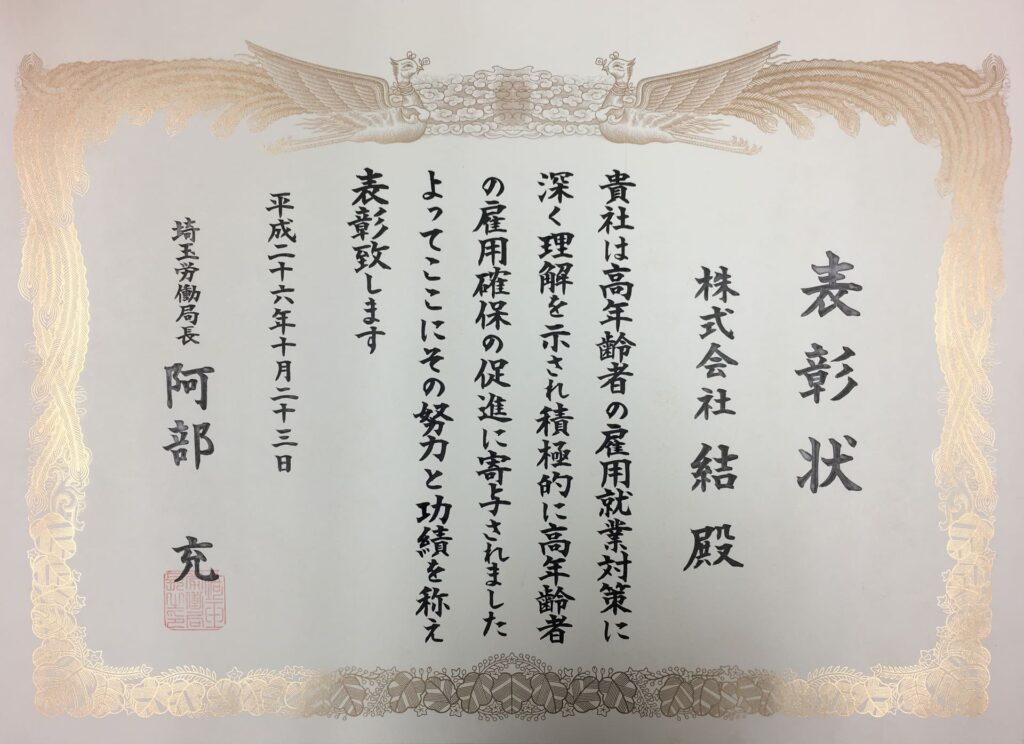 表彰状
株式会社 結 殿
貴社は高年齢者の雇用就業対策に
深く理解を示され積極的に高年齢者
の雇用確保の促進に寄与されました
よってここにその努力と功績を称え
表彰致します
平成二十六年十月二十三日
埼玉労働局長 阿部 充